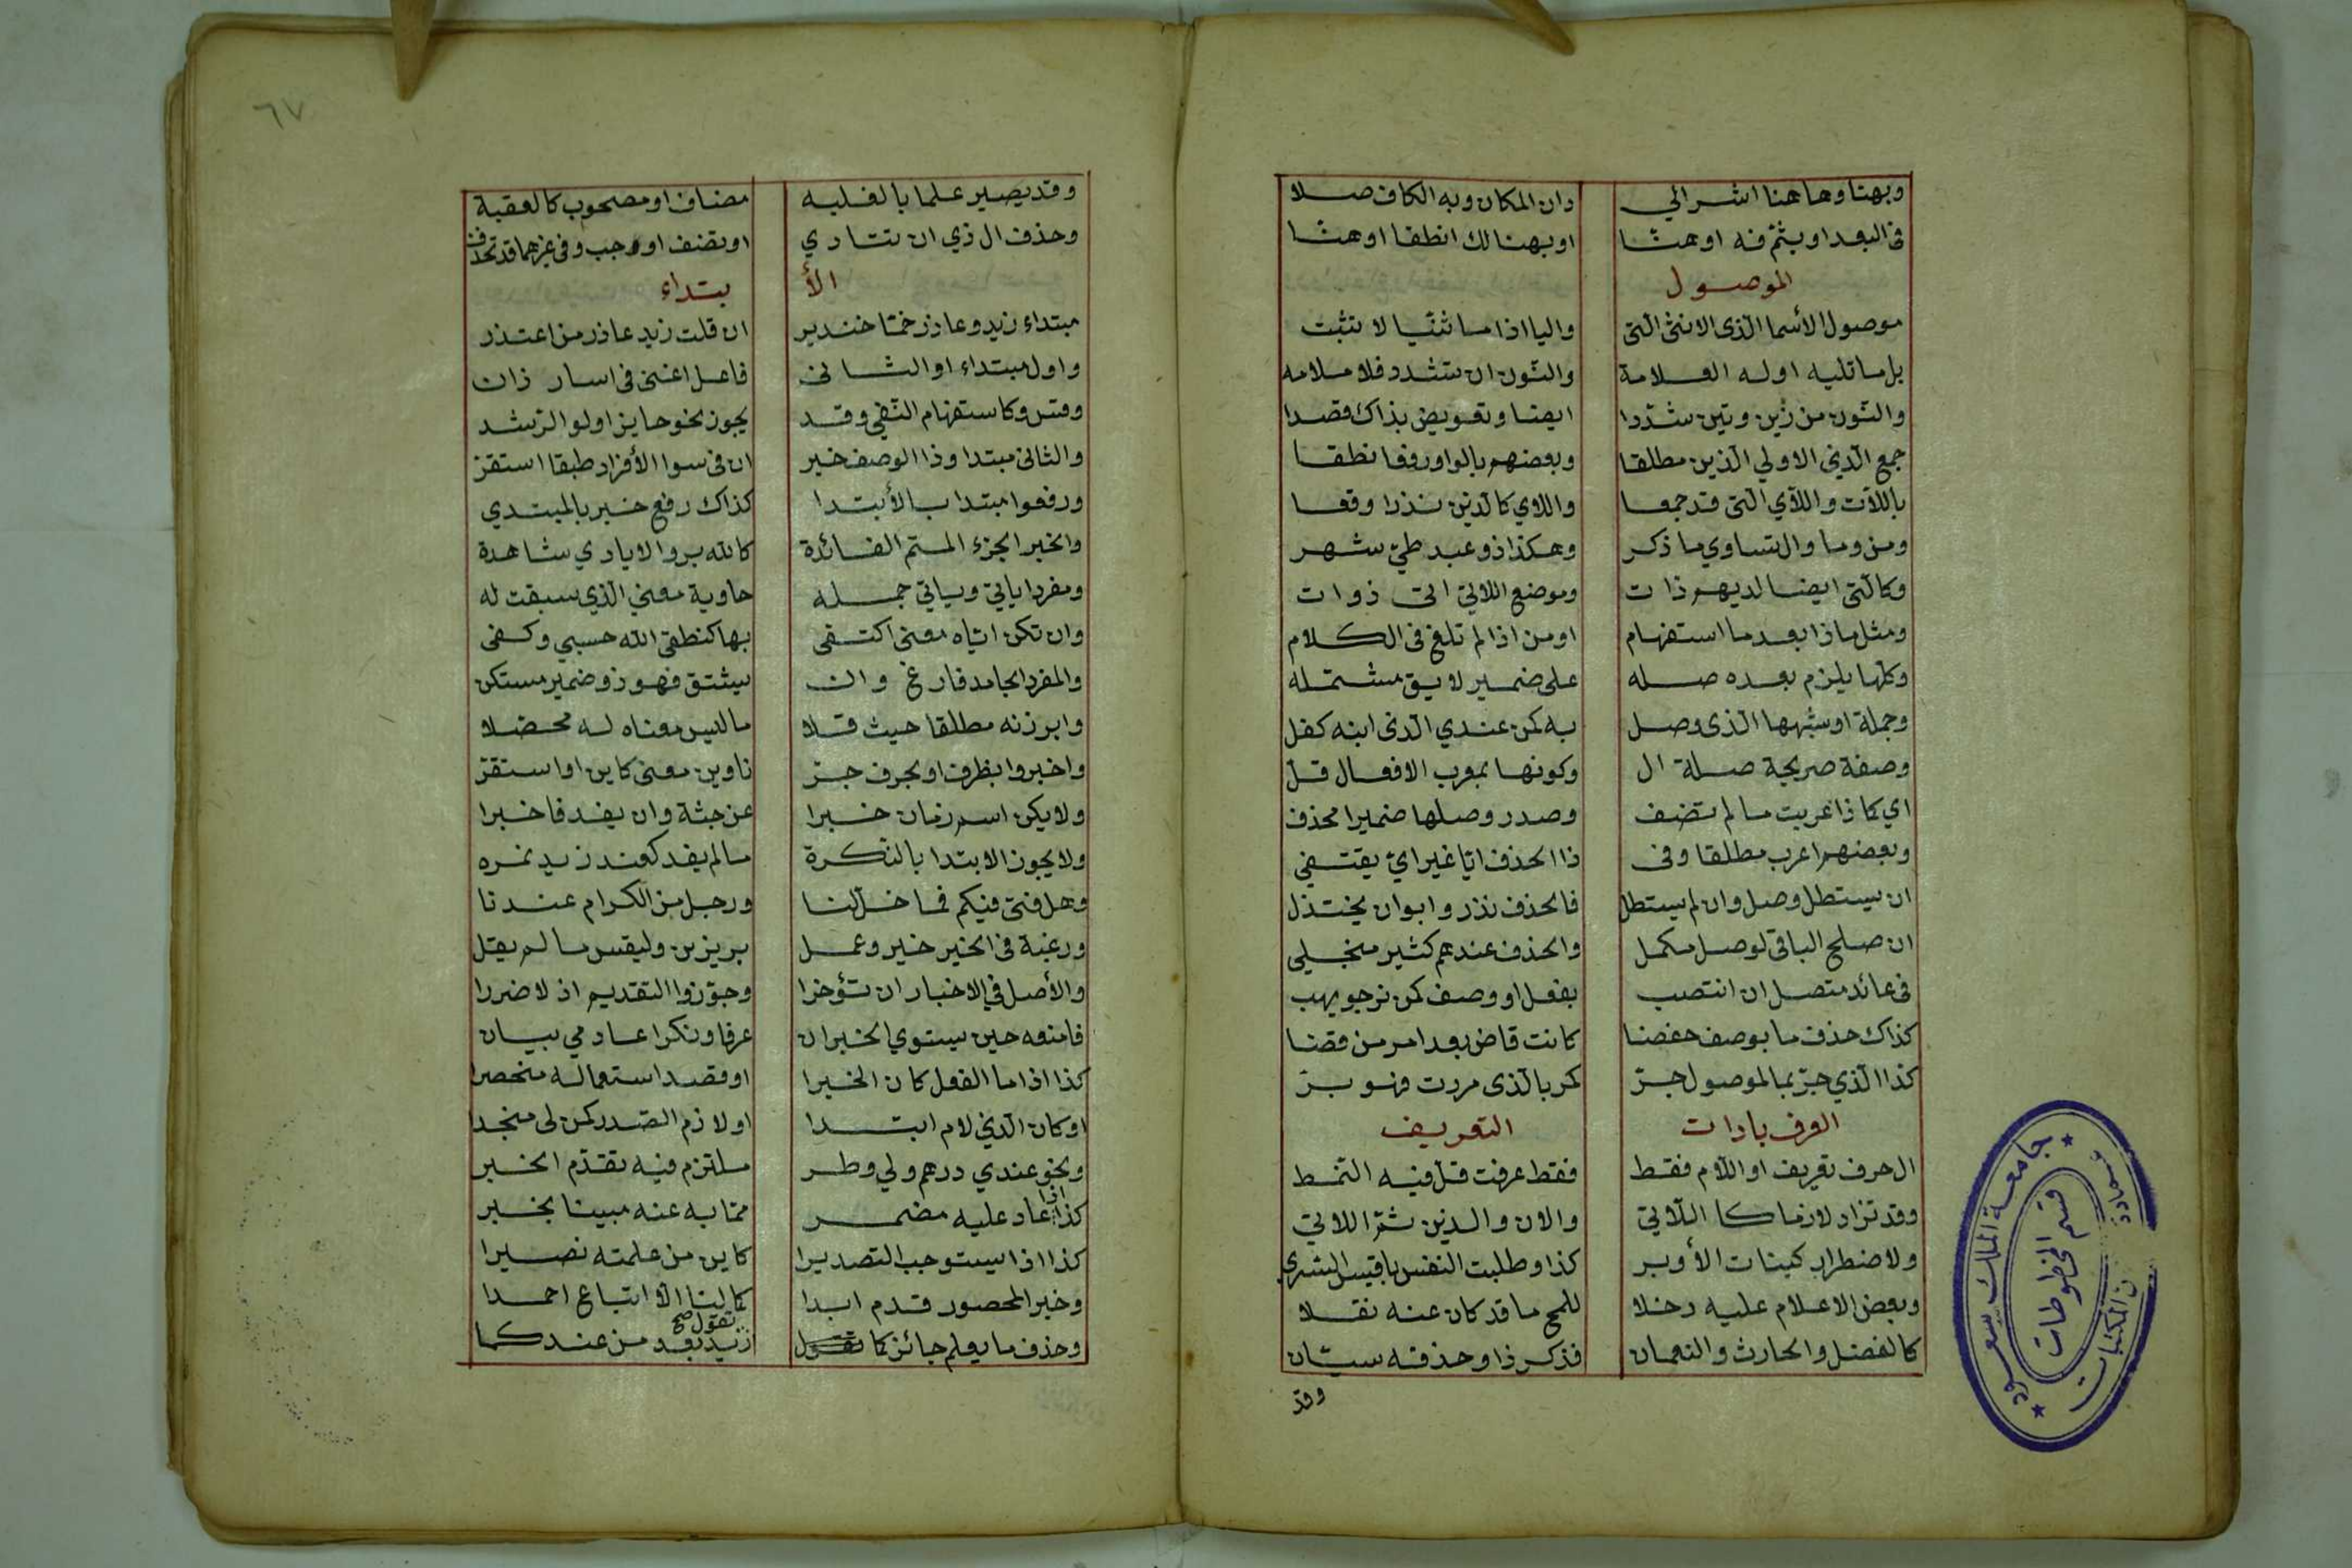 وبهنا وهاهنا اشر الي دان المكان وبه الكاف صلا
فى البعد او بثمّ فه او هنّا او بهنا لك انطقا او هنّا
الموصول
موصول الأسما الّذى الانثى الّتى واليا اذا ما ثنّيا لا تثبت
بل ما تليه اوله العلامة والنّون ان تشدد فلا ملامه
والنّون من زين وتين شدّدا ايضا وتعويض بذاك قصدا
جمع الّذي الاولي الّذين مطلقا وبعضهم بالواو رفعا نطقا
باللآت واللآي الّتى قد جمعا واللاي كالّذين نذرا وقعا
ومن وما وال تساوي ما ذكر وهكذا ذو عبد طيّ شهر
وكالّتى ايضا لديهم ذات وموضع اللاتي اتى ذوات
ومثل ما ذا بعد ما استفهام او من اذا لم تلغ فى الكلام
وكلّها يلزم بعده صله على ضمير لايق مشتمله
وجملة او شبهها الّذى وصل به كمن عندي الّذى ابنه كفل
وصفة صريحة صلة ال وكونها بمعرب الافعال قلّ
اي كما ذا عربت ما لم تضف وصدر وصلها ضميرا محذف
وبعضهم اعرب مطلقا وفى ذا الحذف ايّا غير ايّ يقتفي
ان يستطل وصل وان لم يستطل فالحذف نذر وابوا ن يختذل
ان صلح الباقى لوصل مكمل والحذف عندهم كثير منجلي
فى عائد متصل ان انتصب بفعل او وصف كمن نرجو يهب
كذاك حذف ما بوصف خفضا كانت قاض بعد امر من قضا
كذا الّذي جرّ بما الموصول جرّ كمر بالّذى مررت فهو برّ
العرف بادات التعريف
ال حرف تعريف او اللّام فقط فقط عرفت قل فيه النّمط
وقد تزاد لازما كا اللّاتي والان والدين ثمّ اللاتي
ولاضطرار كبنات الأوبر كذا وطلبت النفس ياقيس السّري
وبعض الاعلام عليه دخلا للمح ما قد كان عنه نقلا
كالفضل والحارث والنعمان فذكر ذا وحذفه سيّان
وقد
٦٧
وقد يصير علما بالغلبه مضاف او مصحوب كالعقبة
وحذف ال ذي ان تنادي او تضف اوجب وفى غيرهما قد تحذف
الأ بتداء
مبتداء زيد وعاذر ختا خندير ان قلت زيد عاذر من اعتذر
واول مبتداء او الثانى فاعل اغنى فى اسار ذان
وقس وكاستفهام النّفي وقد يجوز نخو حايز اولو الرّشد
والثانى مبتدا وذا الوصف خبر ان فى سوا الأفراد طبقا استقر
ورفعوا مبتدا بالأبتدا كذاك رفع خبر بالمبتدي
والخبر الجزء المتم الفائدة كالله بر والايادي شاهدة
ومفردا ياتي وياتي جمله حاوية معني الّذي سبقت له
وان تكن ايّاه معنى اكتفى بها كنطقى الله حسبي وكفى
والمفرد الجامد فارغ وان يشتق فهو ذو ضمير مستكن
وابرزنه مطلقا حيث تلا ما ليس معناه له محصّلا
واخبروا بظرف او بحرف جرّ ناوين معنى كاين او استقر
ولا يكن اسم زمان خبرا عن جثة وان يفد فاخبرا
ولا يجوز الابتدا بالنكرة ما لم يفد كعند زيد نمره
وهل فتى فيكم فما خلّ لنا ورجل من الكرام عندنا
ورغبة فى الخير خير وعمل بر يزين وليقس ما لم يقل
والأصل في الاخبار ان تؤخرا وجوّزوا التقديم اذ لا ضررا
فامنعه حين يستوي الخبران عرفا ونكرا عادمي بيان
كذا اذا ما الفعل كان الخبرا او قصد استعماله منحصرا
او كان الّذي لام ابتدا او لازم الصّدر كمن لى منجدا
ونخو عندي درهم ولي وطر ملتزم فيه تقدّم الخبر
كذا اذا عاد عليه مضمر ممّا به عنه مبينا يخبر
كذا اذا يستوجب التصديرا كاين من علمته نصيرا
وخبر المحصور قدم ابدا كما لنا الّا اتباع احمدا
وحذف ما يعلم جائز كما تقول تقول صح زيد بعد من عند كما
جامعة الملك سعود
قسم المخطوطات